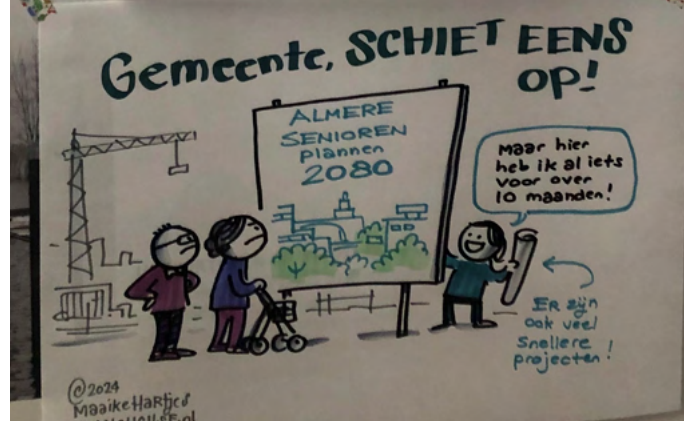 Gemeente, SCHIET EENS
OP!
ALMERE
SENIOREN
plannen
2080
Maar hier
heb ik al iets
voor over
10 maanden!
ER zijn
ook veel
snellere
projecten!
©2024
Maaike Hartjes